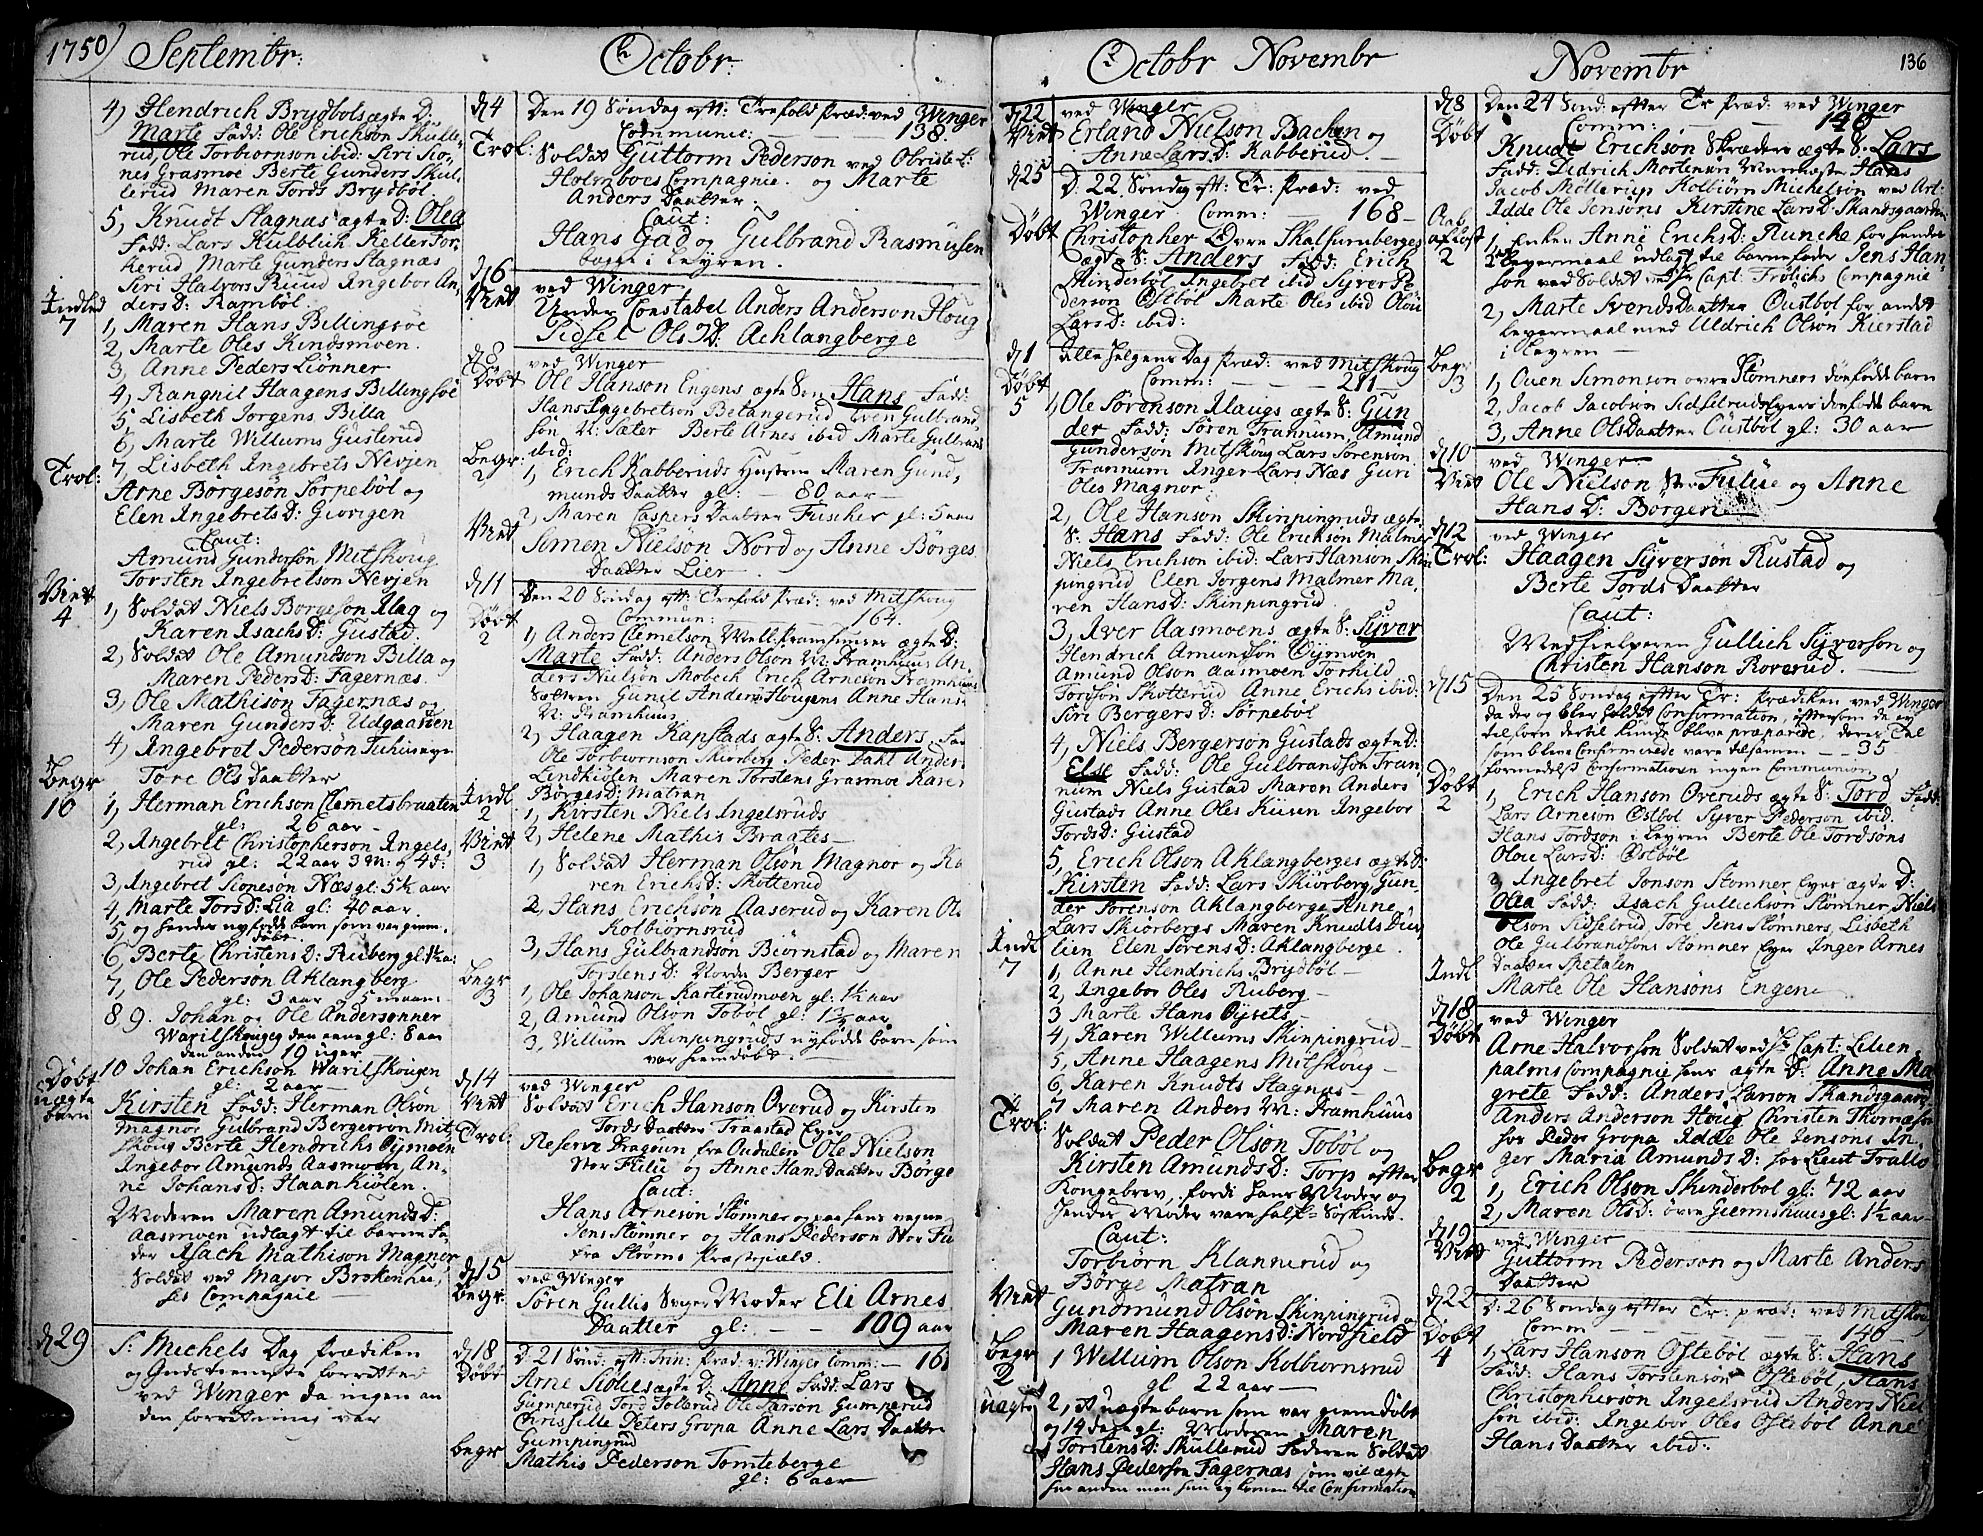 1750) Septembr:
4) Hendrich Brydbols ægte D:
Marte Fadd: Ole Erichson Skulle-
rud, Ole Torbiornson ibid: Siri Sio-
nes Grasmoe Berte Gunders Skul-
lerud Maren Tords Brydbøl.
5, Knudt Stagnæs ægte D: Olea
Fadd: Lars Kulblich Keller Tor-
kerud Marte Gunders Stagnæs
Siri Halvors Ruud Ingebor An-
ders D: Rambøl.
Indled
7
1, Maren Hans Billingsöe
2, Marte Oles Rindsmoen.
3, Anne Peders Liönner
4, Rangnil Haagens Billingsöe
5, Lisbeth Jorgens Billa
6, Marte Willums Gusterud
7, Lisbeth Ingebrets Nevjen
Trol:
Arne Börgesön Sorpeböl og
Elen Ingebrets D: Giorigen
Caut:
Amund Gundersön Mitskoug
Torsten Ingebretson Nevjen
Viet
4
1, Soldat Niels Borgeson Flag og
Karen Isachs D: Gustad.
2, Soldat Ole Amundson Billa og
Maren Peders D: Fagernæs.
3, Ole Mathison Fagernæs og
Maren Gunders D: Udgaarden
4, Ingebret Pedersön
Tore Ols Daatter
Begr
10
1, Herman Erichson Clemetsbraaten
gl: 26 aar
2, Ingebret Christopherson Ingels,
rud gl: 22 aar 3 M: 4 d:
3, Ingebret Sionesön Næs gl: 5½ aar
4, Marte Tors D: Lia gl: 40 aar.
5, og hendes nyfödt barn som var giem-
döbt.
6 Berte Christens D: Riuberg gl: 1½ a:
7, Ole Pederson Aklangberg
gl: 3 aar 5 maan:
8, 9. Johan og Ole Andersonner
Warilskougeg den eene gl: 8 aar
den anden 19 uger
10 Johan Erichson Warilskougen
gl: 2 aar
Döbt
uægte
barn
Kirsten Fadd: Herman Olson
Magnor Gulbrand Bergerson Mit-
skoug Berte Hendrichs Öjermoen
Ingebor Amunds Aasmoen, An-
ne Johans D: Haankiölen.
Moderen Maren Amunds D:
Aasmoen udlagt til barne Fa-
der Isach Mathison Magnor
Soldat ved Major Brokenhu,
ses Compagnie
d 29
S: Michels Dag Prædiken
og Guds tienneste forrettet
ved Winger da ingen an
den forretning var
Octobr:
d 4
Den 19 Söndag eft: Trefold Præd: ved Winger
Communic: 138.
Trol:
Soldat Guttorm Pederson ved Obriste L:
Holmboes Compagnie. og Marte
Anders Daatter.
Caut:
Hans Gad og Gulbrand Rasmusen
begge i Leyren.
d 6
Viet
ved Winger
Under Constabel Anders Anderson Houg
Sidsel Ols D: Achlangberge
d 8
Döbt
ved Winger
Ole Hanson Engens ægte Sön Hans Fadd:
Hans Ingebretson Betangerud Even Gulbrand
sön N: Sæter Berte Arnes ibid Marte Gulbrans
ibid:
Begr:
2
1, Erich Kabberuds Hustrue Maren Gund,
munds Daatter gl: 80 aar
2, Maren Caspers Daatter Fischer gl: 5 aar
Viet
Simen Nielson Nord og Anne Börges
Daatter Lier
d 11
Den 20 Söndag eft: Trefold Præd: ved Mitskoug
Commun: 164.
Döbt
2
1, Anders Clemelson Mell: Framhuuses ægte D:
Marte Fadd: Anders Olson N: Framhuus An-
ders Nielson Mobech Erich Arneson Framhuus
Gunil Anders Hougens Anne Hans
N: Framhuus
2, Haagen Kapstads ægte S: Anders Fad
Ole Torbiornson Skiorberg Peder Dahl Anders
Lindkiölen Maren Torstens Grasmoe Karen
Börges D: Matran
Indl.
2
1, Kirsten Niels Ingelsruds
2, Helene Mathis Braates
Viet
3
1, Soldat Herman Olsön Magnor og Ka
ren Erichs D: Skotterud
2, Hans Erichsön Aaserud og Karen Ols
Kolbiörnsrud
3, Hans Gulbrandsön Biörnstad og Maren
Torstens D: Nordre Berger
Begr
3
1, Ole Johanson Kasterudmoen gl: 1½ aar
2, Amund Olsön Tobøl gl: 1½ aar
3, Willum Skinpingruds nyfödt barn som
var hiemdöbt.
d 14
Viet
ved Winger
Soldat Erich Hanson Overud og Kirsten
Tords Daatter Traastad Eyer
Trol:
Reserve Dragoun fra Oudalen Ole Nielson
Stor Filie og Anne Hans Daatter Börge
Caut:
Hans Arneson Stömner og paa hans vegne
Jens Stömner og Hans Pederson Stor Fu
fra Ströms Præstegield.
d 15
Begr:
ved Winger
Sören Gullis Svoger Moder Eli Arnes
Daatter gl: 109 aar
d 18
Döbt
D: 21 Sönd: eft: Trin: Præd: v: Winger Comm: 16
Arne Siölies ægte D: Anne Fadd: Lars
Gumperud Tord Tollerud Ole Larson Gumperud
Chrissille Peters Gropa Anne Lars Daatter
Gumpingrud
Begr
Mathis Pederson Tomteberge
gl: 6 aar
Octobr Novembr
d 22
Viet
ved Winger
Erland Nielson Bachen og
Anne Lars D: Kabberud.
d 25
D: 22 Söndag eft: Tr: Præd: ved
Winger Comm: 168
Döbt
Christopher Övre Skalfurubergs
ægte S: Anders Fadd: Erich
Hinderböl Ingebret ibid Syver Pe
derson Östböl Marte Oles ibid Oloü
Lars D: ibid:
d 1
alle Helgens Dag Præd: ved Mitskoug
Comm: 211
Döbt
5
1, Ole Sörenson Klaugs ægte S: Gun
der Fadd: Sören Trannum Amund
Gunderson Mitskoug Lars Sörenson
Trannum Inger Lars Næs Guri
Oles Magnor
2, Ole Hanson Skinpingruds ægte
S: Hans Fadd: Ole Erichson Malmer
Niels Erichson ibid: Lars Hanson Skin
pingrud Elen Jorgens Malmer Ma-
ren Hans D: Skinpingrud.
3, Iver Aasmoens ægte S: Syver
Hendrich Amundsön Öijmoen
Amund Olson Aasmoen Torhild
Tordson Skotterud Anne Erichs ibid:
Siri Bergers D: Sörpeböl
4, Niels Bergerson Gustads ægte D:
Else Fadd: Ole Gulbrandson Tran-
num Niels Gustad Maren Anders
Gustads Anne Oles Kiisen Ingebor
Tords D: Gustad
5, Erich Olson Aklangberges ægte D:
Kirsten Fadd: Lars Skiorberg, Gun-
der Sörenson Aklangberge Anne
Lars Skiorbergs Maren Knudts Dus-
lien Elen Sörens D: Aklangberge.
Indl
7
1, Anne Hendrichs Brydböl
2, Ingebor Oles Riuberg
3 Marte Hans Öysets
4, Karen Willums Skinpingrud
5, Anne Haagens Mitskoug
6, Karen Knudts Stagnæs
7 Maren Anders N: Framhuus
Trol:
Soldat Peder Olson Toböl og
Kirsten Amunds D: Torp efter
Kongebrev, fordi hans Moder og
hendes Moder vare half-Söskinde.
Caut:
Torbiörn Klannerud og
Börge Matran
Viet
Gundmund Olsön Skinpingrud og
Maren Haagens D: Nordfield
Begr
2
1 Willum Olson Kolbiornsrud
gl 22 aar
uægte
2, Et uægte barn som var giemdöbt
og 14 dage gl: Moderen Maren
Torstens D: Skullerud Faderen Soldat
Hans Pederson Fagernæs som vil ægte
Novembr
136
d 8
Den 24 Sönd: efter Tr Præd: ved Winger
Comm: 148
Döbt
Knudt Erichson Skræders ægte S: Lars
Fadd: Didrich Mortensön Hans
Jacob Möllerup Kolbiörn Michelsön ved Art:
Idde Ole Jensöns Kirstine Lars D: Skandsgaarden
Aab,
afløst
2
1, Enken Anne Erichs D: Runche for hendes
Leyermaal udlagt til barnefader Jens Han-
son ved Soldat ved Capt. Frölichs Compagnie
2, Marte Svends Daatter Oustböl for andet
Leyermaal med Uldrich Olson Kierstad
i Leyren
Begr
3
1, Ouen Simonson övre Stömners dödfödt barn
2, Jacob Jacobson Sidselruds Eyers dödfödt barn
3, Anne Ols Daatter Oustböl gl: 30 aar
d 10
Viet
ved Winger
Ole Nielson St: Fulue og Anne
Hans D: Börgen
d 12
Trol:
ved Winger
Haagen Syversön Rustad og
Berte Tords Daatter
Caut:
Medhielperen Gullich Syverson og
Christen Hanson Roverud
d 15
Den 25 Söndag efter Tr: Prædiken ved Winger
da der og blev holdet Confirmation, eftersom de ey
tilforn dertil kunde blive præparede, deres Tal
som bleve Confirmerede vare tilsammen 35
formedelst Confirmationen ingen Communion
Döbt
2
1, Erich Hanson Overuds ægte S: Tord Fadd:
Lars Arneson Östböl Syver Pederson ibid.
Hans Tordson i Leyren Berte Ole Tordsöns
Oloü Lars D: Östböl
2 Ingebret Jonson Stömner Eyer ægte D:
Olea Fadd: Isach Gullichson Stömner, Niels
Olson Sidselrud, Tore Jens Stömners, Lisbeth
Ole Gulbrandsöns Stömner Eyer Inger Arnes
Daatter Spetalen
Indl
Marte Ole Hansöns Engene
d 18
Döbt
ved Winger
Arne Halvorson Soldat ved Capt: Lilien
palms Compagnie hans ægte D: Anne Ma
grete Fadd: Anders Larson Skandsgaard,
Anders Anderson Houg Christen Thornæs
hos Peder Gropa Idde Ole Jensons In,
ger Maria Amunds D: hos Lieut Trallo
Begr
2
1, Erich Olson Skinderbol gl: 72 aar
2, Maren Ols D: övre Giermshuus gl: 1½ aar
d 19
Viet
ved Winger
Guttorm Pederson og Marte Anders
Daatter
d 22
D: 26 Söndag efter Tr: præd: ved Mitskoug
Comm 146
Döbt
4
1, Lars Hanson Ofteböl ægte S: Hans
Fadd: Hans Torstenson Ofteböl, Hans
Christopherson Ingelsrud Anders Niel
sön ibid: Ingebor Oles Ofteböl Anne
Hans Daatter ibid: